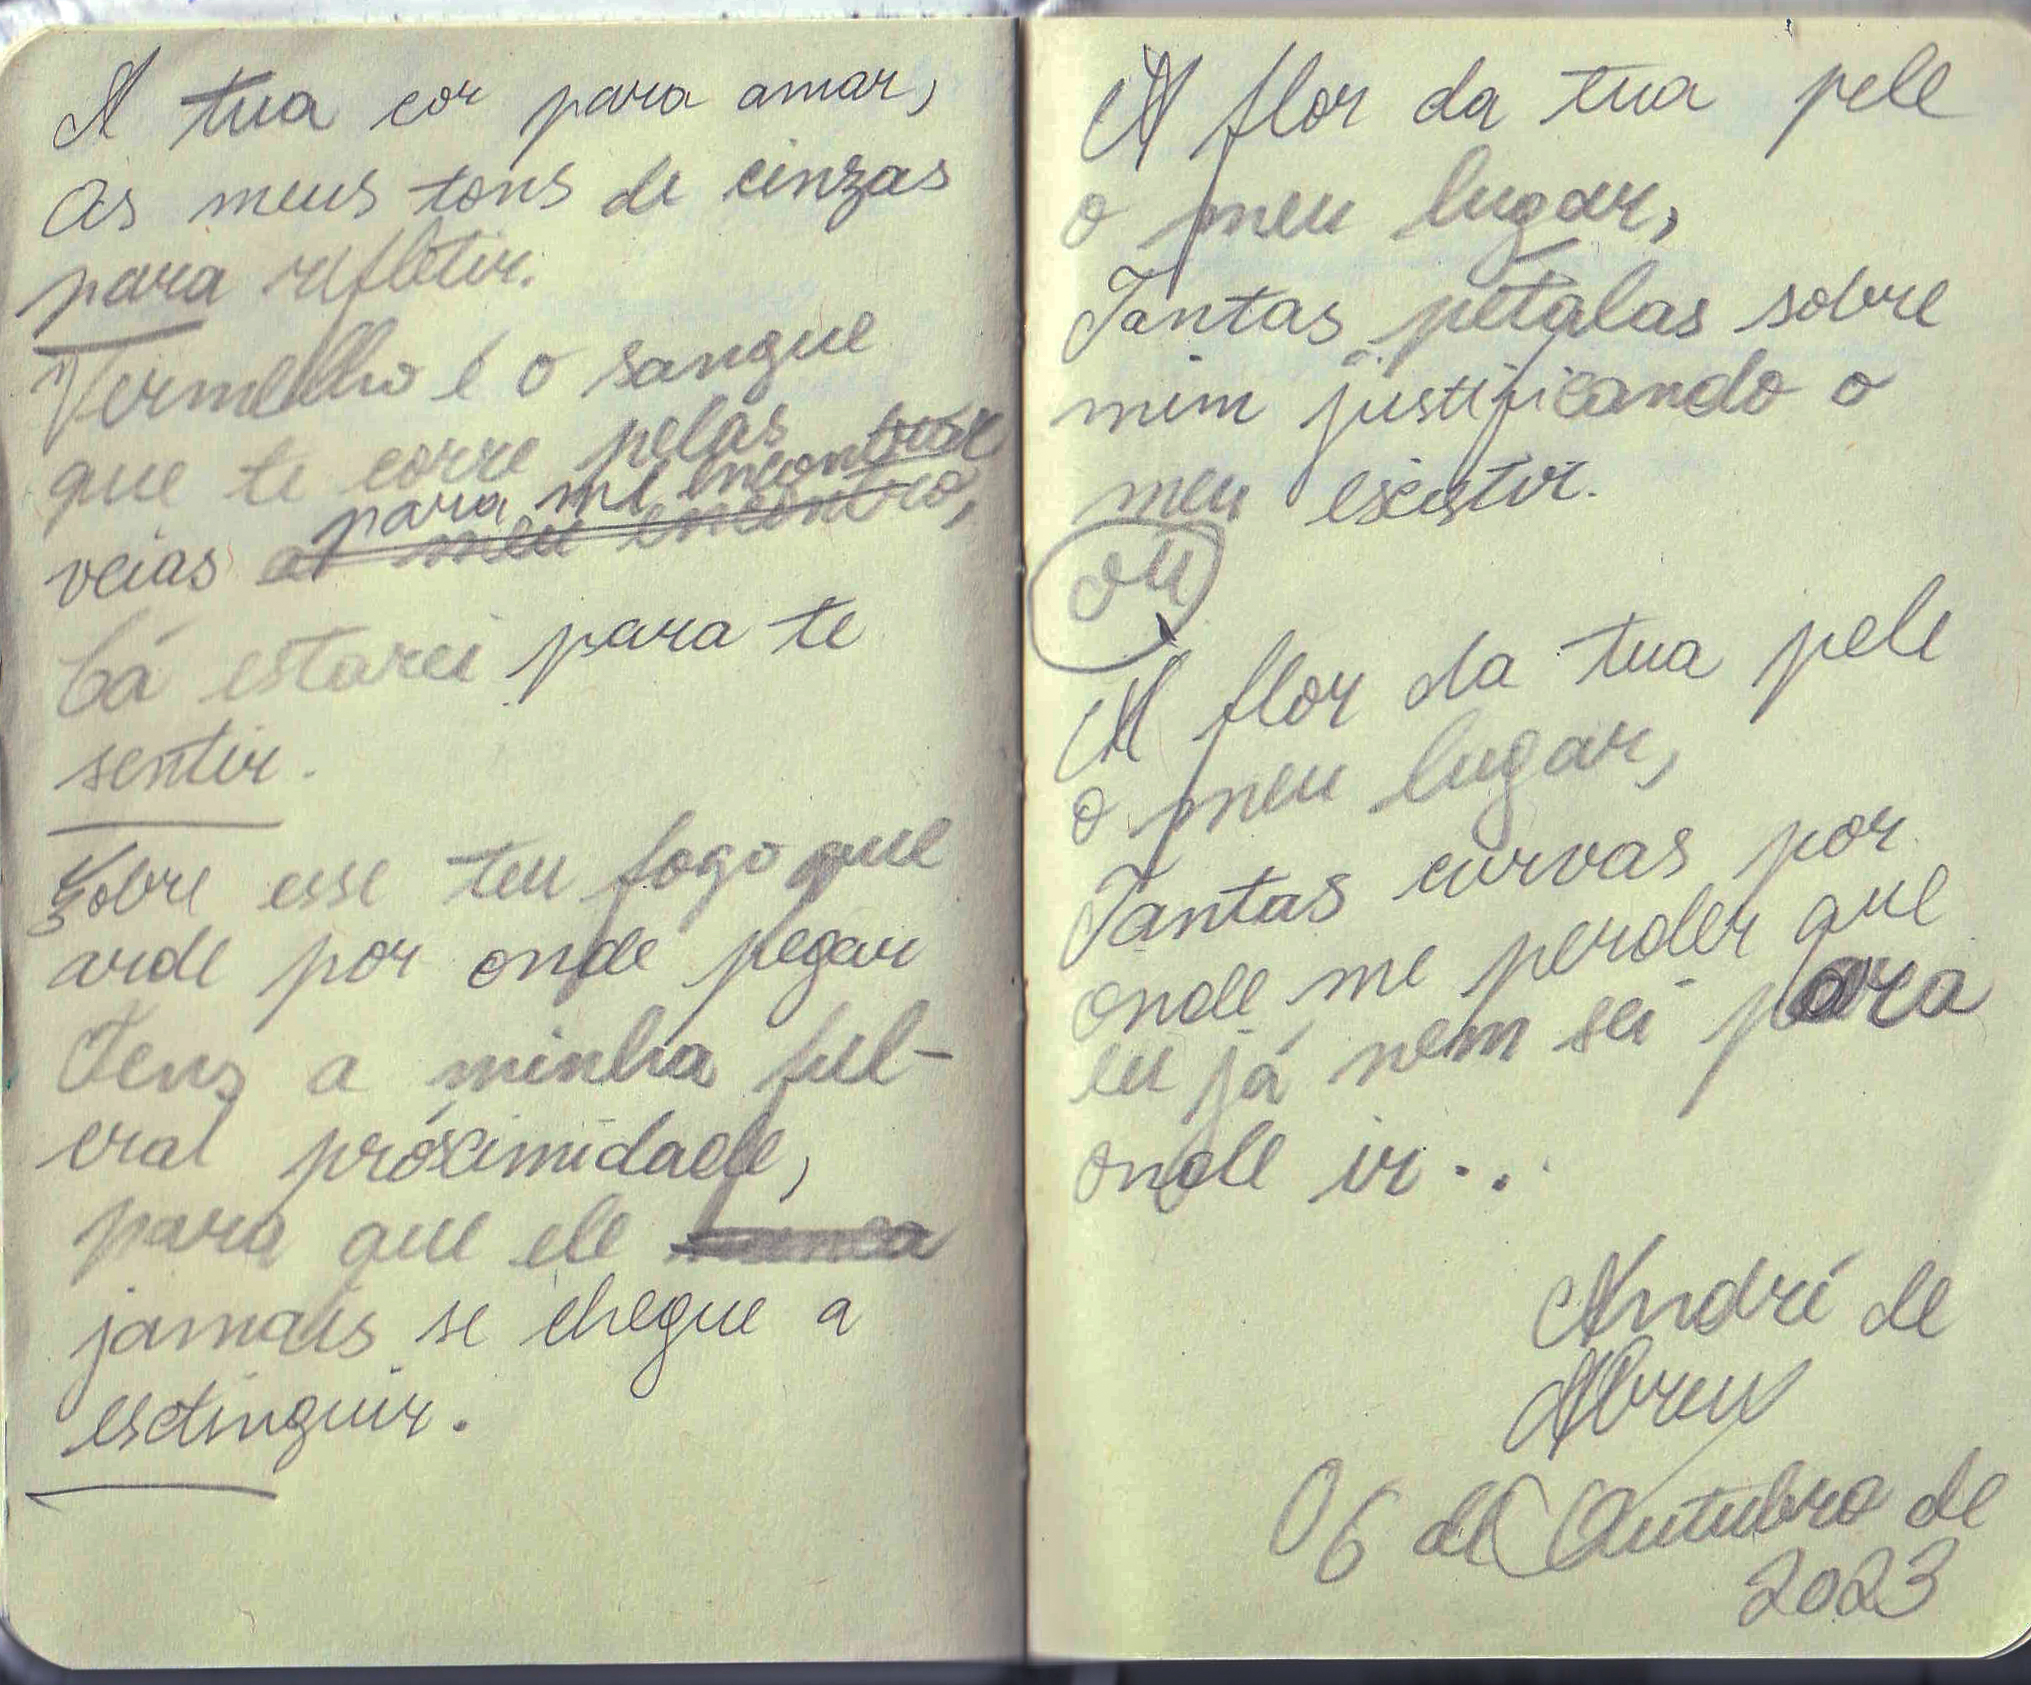 A tua cor para amar,
Os meus tons de cinzas
para refletir.
Vermelho é o sangue
que te corre pelas
para me encontrar
veias ao meu encontro,
Cá estarei para te
sentir.
Sobre esse teu fogo que
arde por onde pegar
Tens a minha ful-
cral próximidade,
para que ele nunca
jamais se chegue a
extinguir.
A flor da tua pele
o meu lugar,
Tantas pétalas sobre
mim justificando o
meu existir.
ou
A flor da tua pele
o meu lugar,
Tantas curvas por
onde me perder que
eu já nem sei para
onde ir...
André de
Abreu
06 de Outubro de
2023